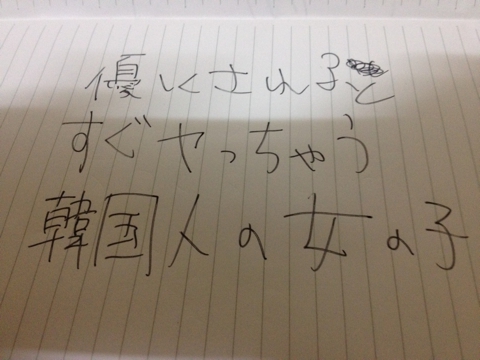 優しくされると
すぐヤっちゃう
韓国人の女の子